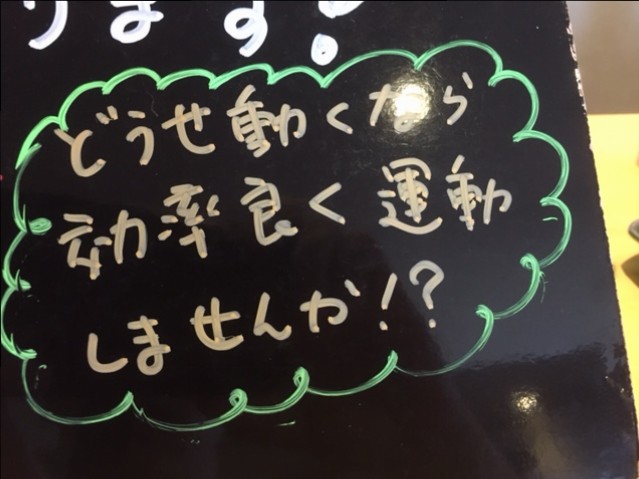 ります!
どうせ動くなら
効率良く運動
しませんか!?